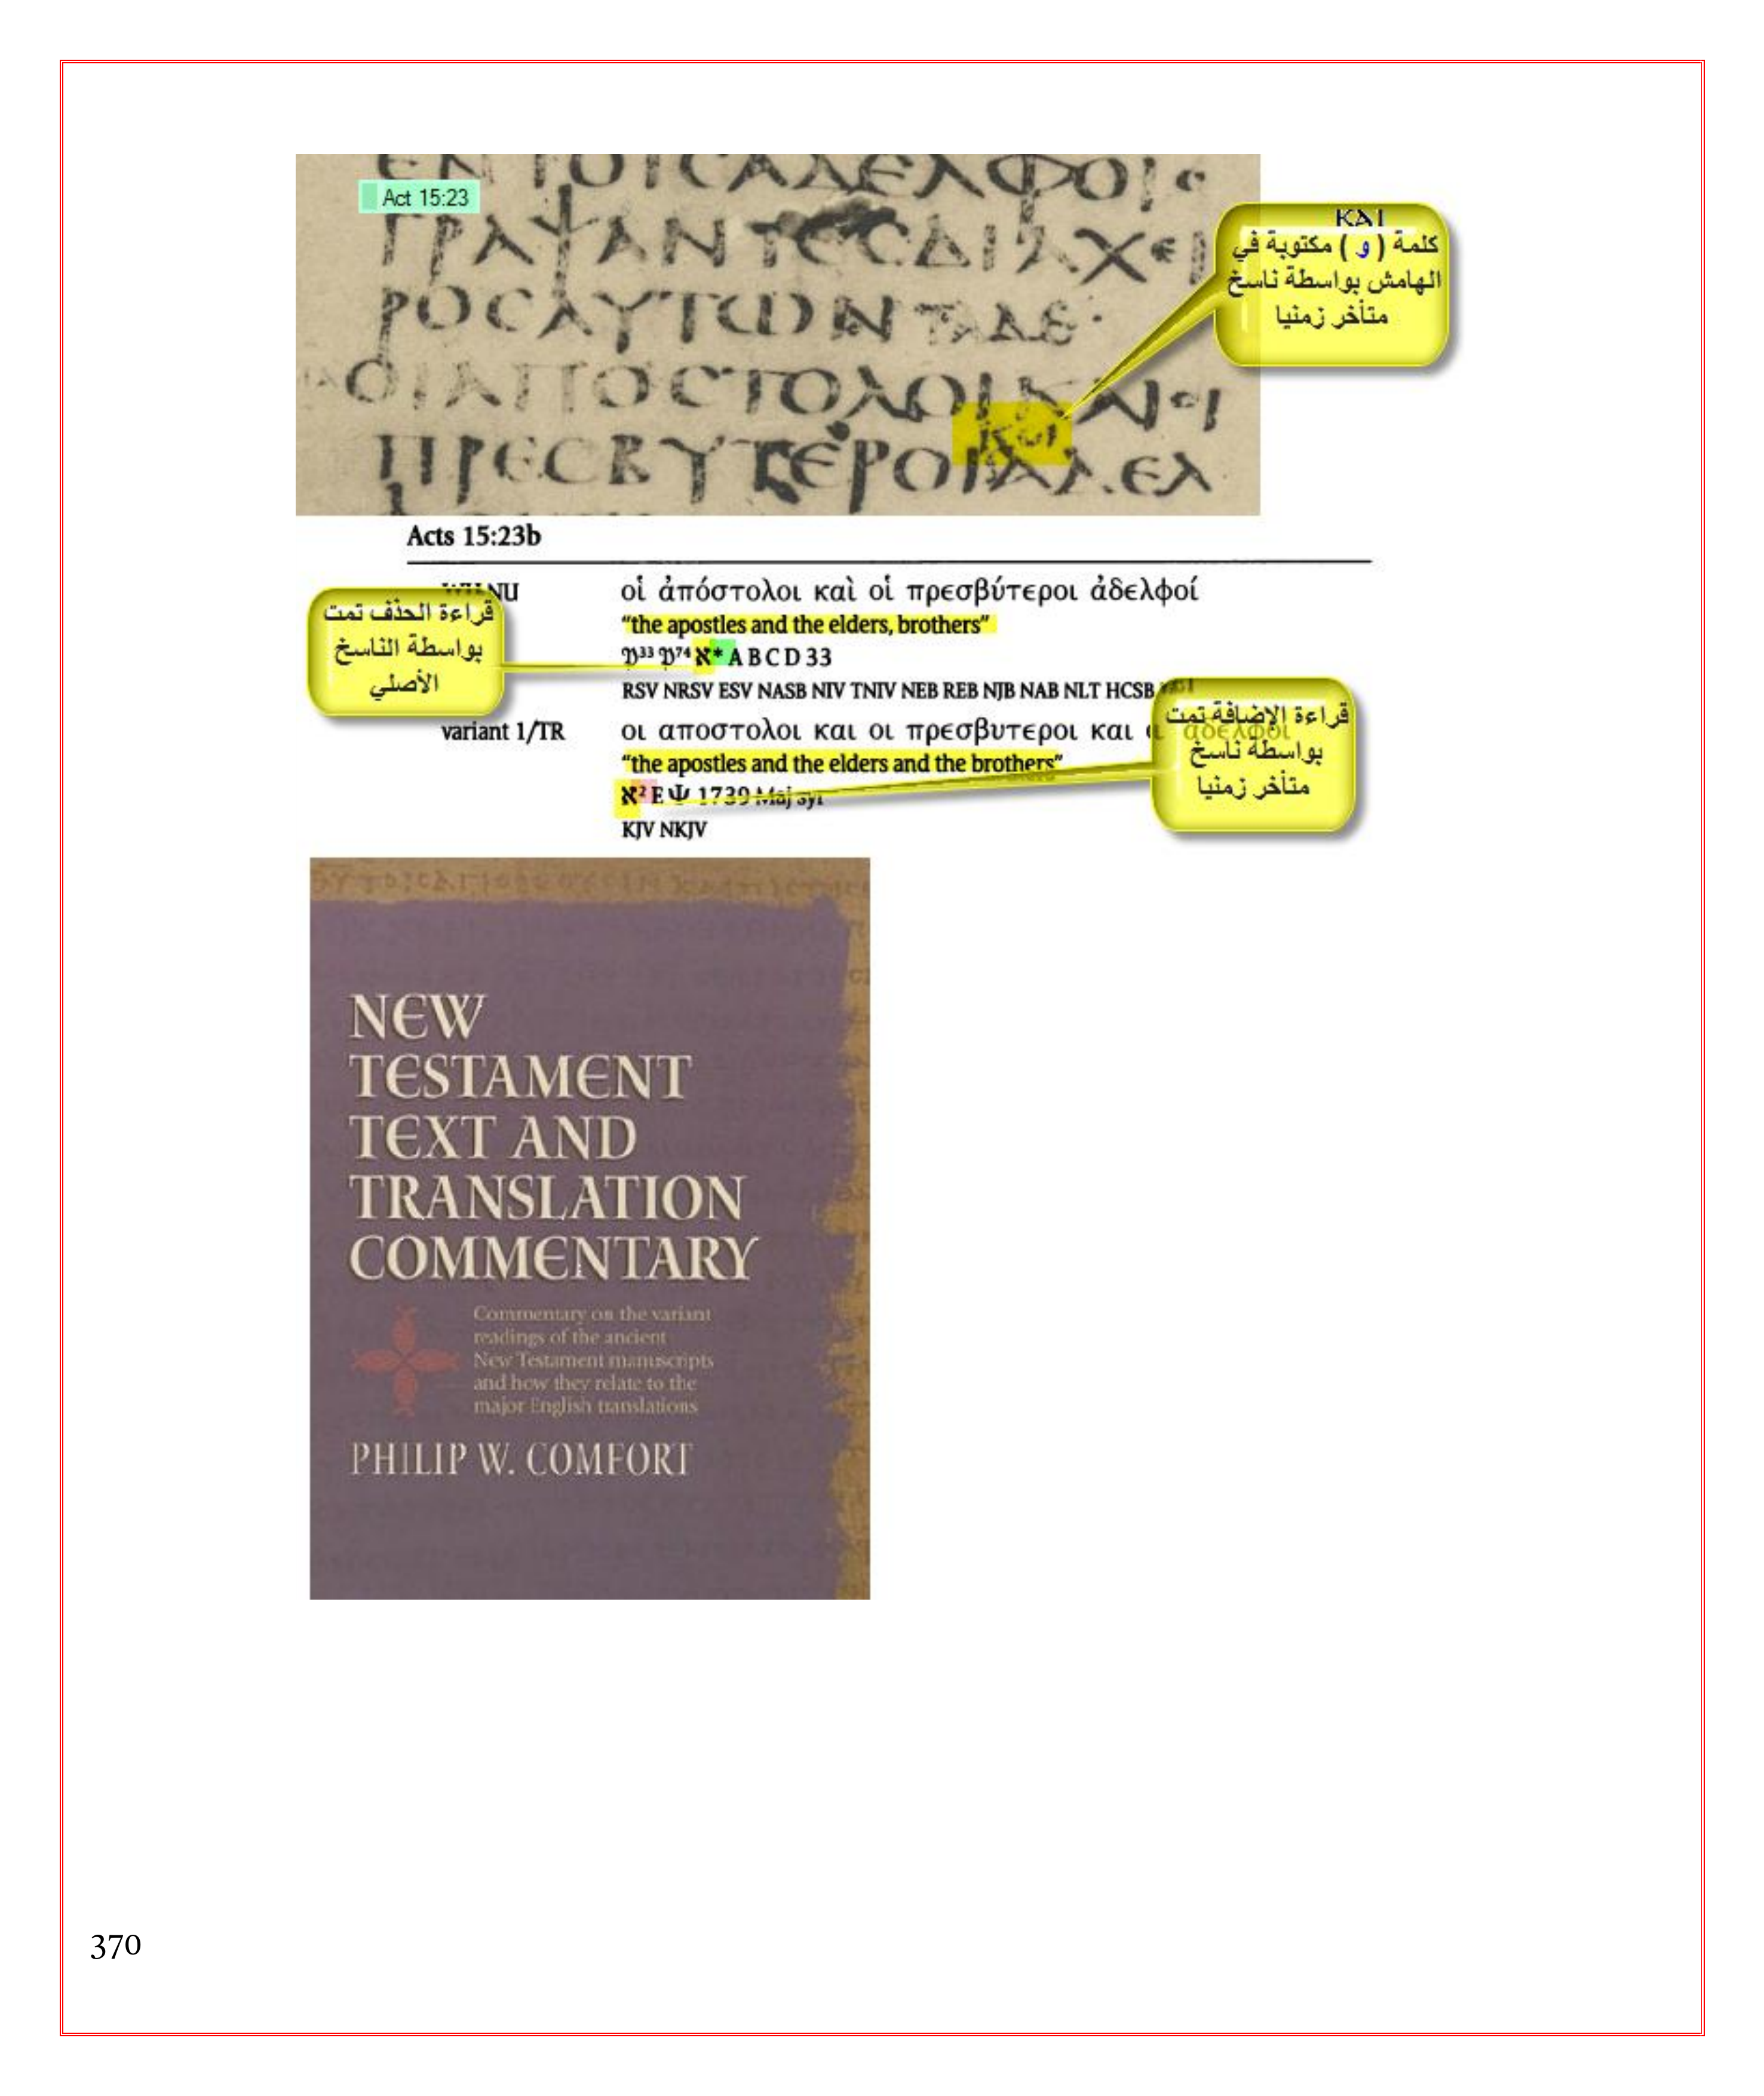 Act 15:23
ΓΡΑΨΑΝΤΕCΔΙΑΧΕΙ
ΡΟCΑΥΤΩΝΤΑΔΕ·
ΟΙΑΠΟCΤΟΛΟΙΚΑΙΟΙ
και
ΠΡΕCΒΥΤΕΡΟΙΑΔΕΛ
ΚΑΙ
كلمة ( و ) مكتوبة في
الهامش بواسطة ناسخ
متأخر زمنيا
Acts 15:23b
NU οἱ ἀπόστολοι καὶ οἱ πρεσβύτεροι ἀδελφοί
“the apostles and the elders, brothers”
𝔓³³ 𝔓⁷⁴ ℵ* A B C D 33
RSV NRSV ESV NASB NIV TNIV NEB REB NJB NAB NLT HCSB
قراءة الحذف تمت
بواسطة الناسخ
الأصلي
variant 1/TR οι αποστολοι και οι πρεσβυτεροι και αδελφοι
“the apostles and the elders and the brothers”
ℵ² E Ψ 1739 Maj syr
KJV NKJV
قراءة الإضافة تمت
بواسطة ناسخ
متأخر زمنيا
NEW
TESTAMENT
TEXT AND
TRANSLATION
COMMENTARY
Commentary on the variant
readings of the ancient
New Testament manuscripts
and how they relate to the
major English translations
PHILIP W. COMFORT
370